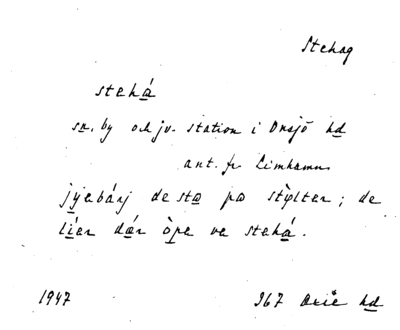 Stehag
stehá
sn. by och jv. station i Onsjö hd
ant. fr Limhamn
jyebárj de sto po stỳlter; de
líer dær òpe ve stehá.
1947 367 Oxie hd